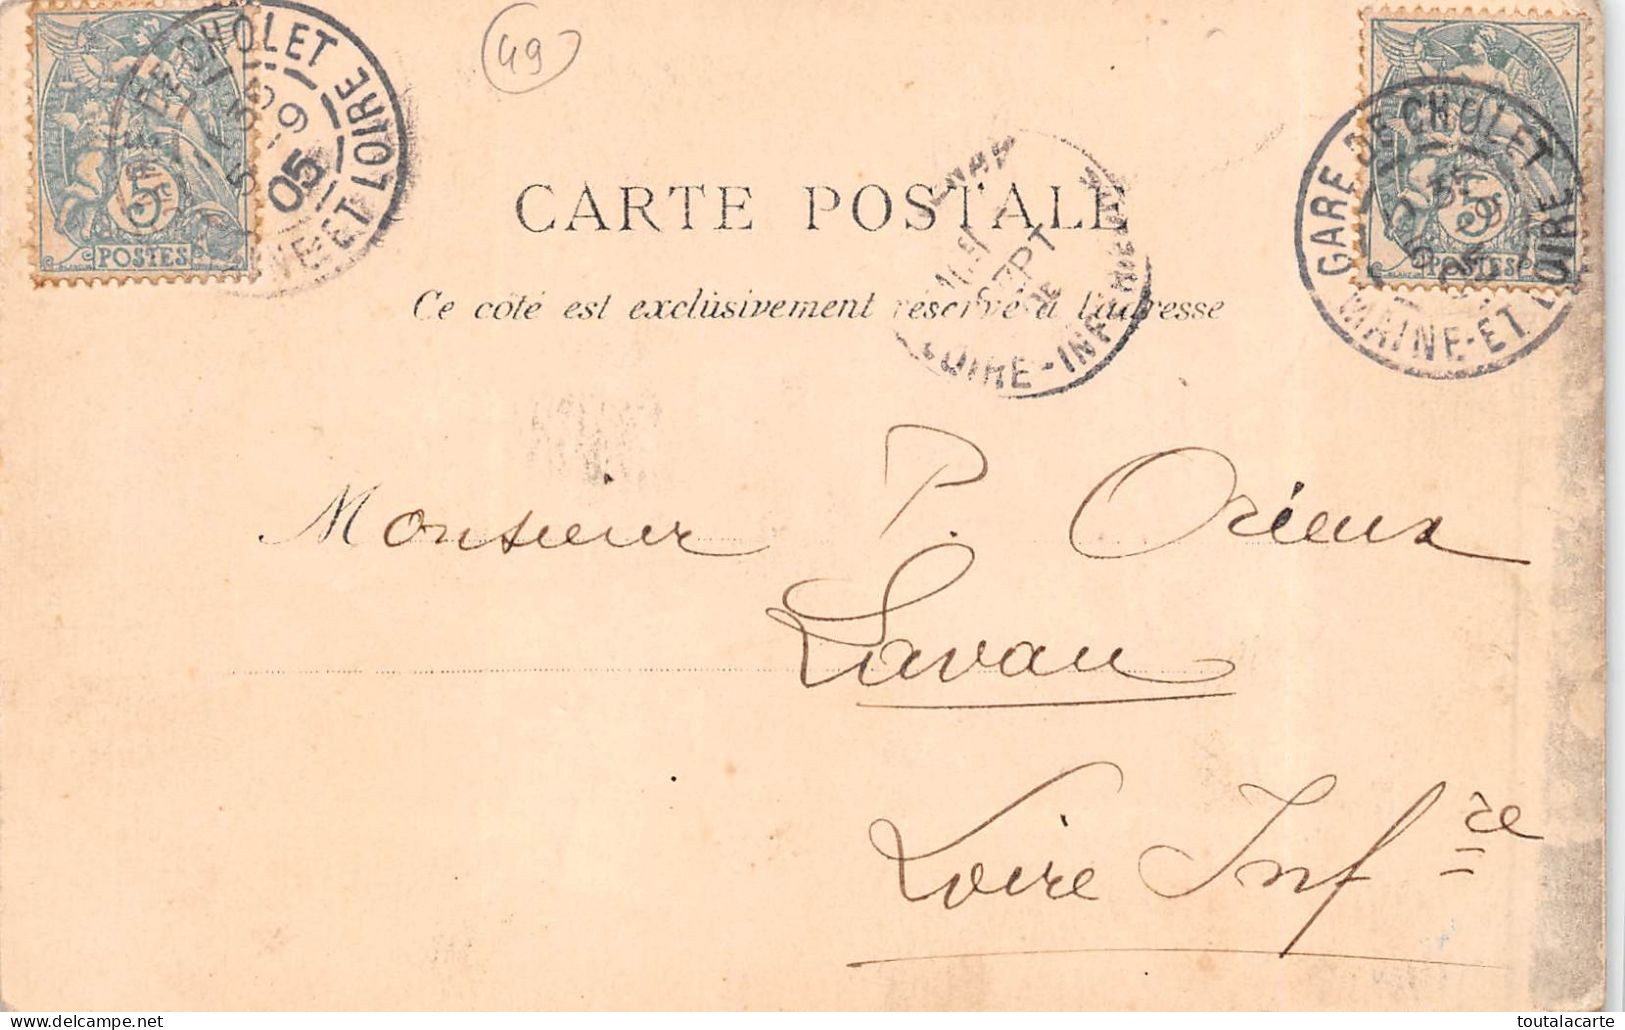 49
GARE DE CHOLET
5 -9 05
MAINE-ET LOIRE
5
POSTES
GARE DE CHOLET
MAINE-ET LOIRE
5
POSTES
SEPT
LOIRE-INFERIEURE
CARTE POSTALE
Ce côté est exclusivement réservé à l'adresse
Monsieur P. Orieux
Lavau
Loire Infre
www.delcampe.net
toutalacarte